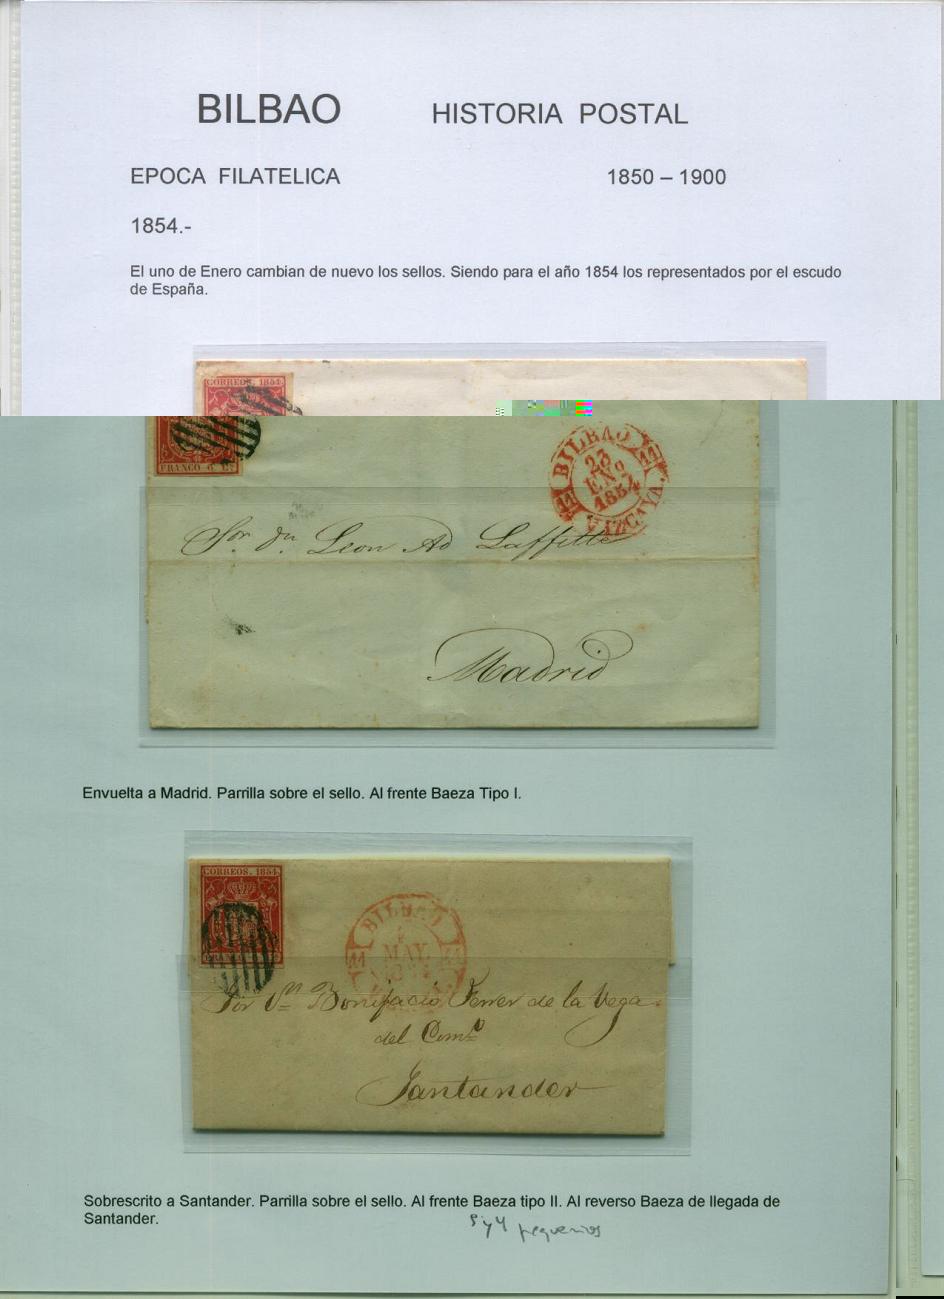 BILBAO HISTORIA POSTAL
EPOCA FILATELICA 1850 – 1900
1854.-
El uno de Enero cambian de nuevo los sellos. Siendo para el año 1854 los representados por el escudo
de España.
CORREOS. 1854.
FRANCO 6 Cs
BILBAO
23
ENº
1854
11 11
VIZCAYA.
Sor. dn. Leon Ad Laffitte
Madrid
Envuelta a Madrid. Parrilla sobre el sello. Al frente Baeza Tipo I.
CORREOS. 1854.
BILBAO
MAY.
11
Bonifacio Ferrer de la Vega
del Comº
Santander
Sobrescrito a Santander. Parrilla sobre el sello. Al frente Baeza tipo II. Al reverso Baeza de llegada de
Santander.
5 y 4 pequeños